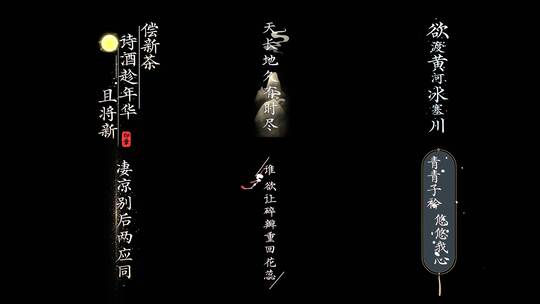 偿新茶
诗酒趁年华
且将新
印章
天长地久有时尽
欲渡黄河冰塞川
凄凉别后两应同
谁欲让碎瓣重回花蕊
青青子衿
悠悠我心